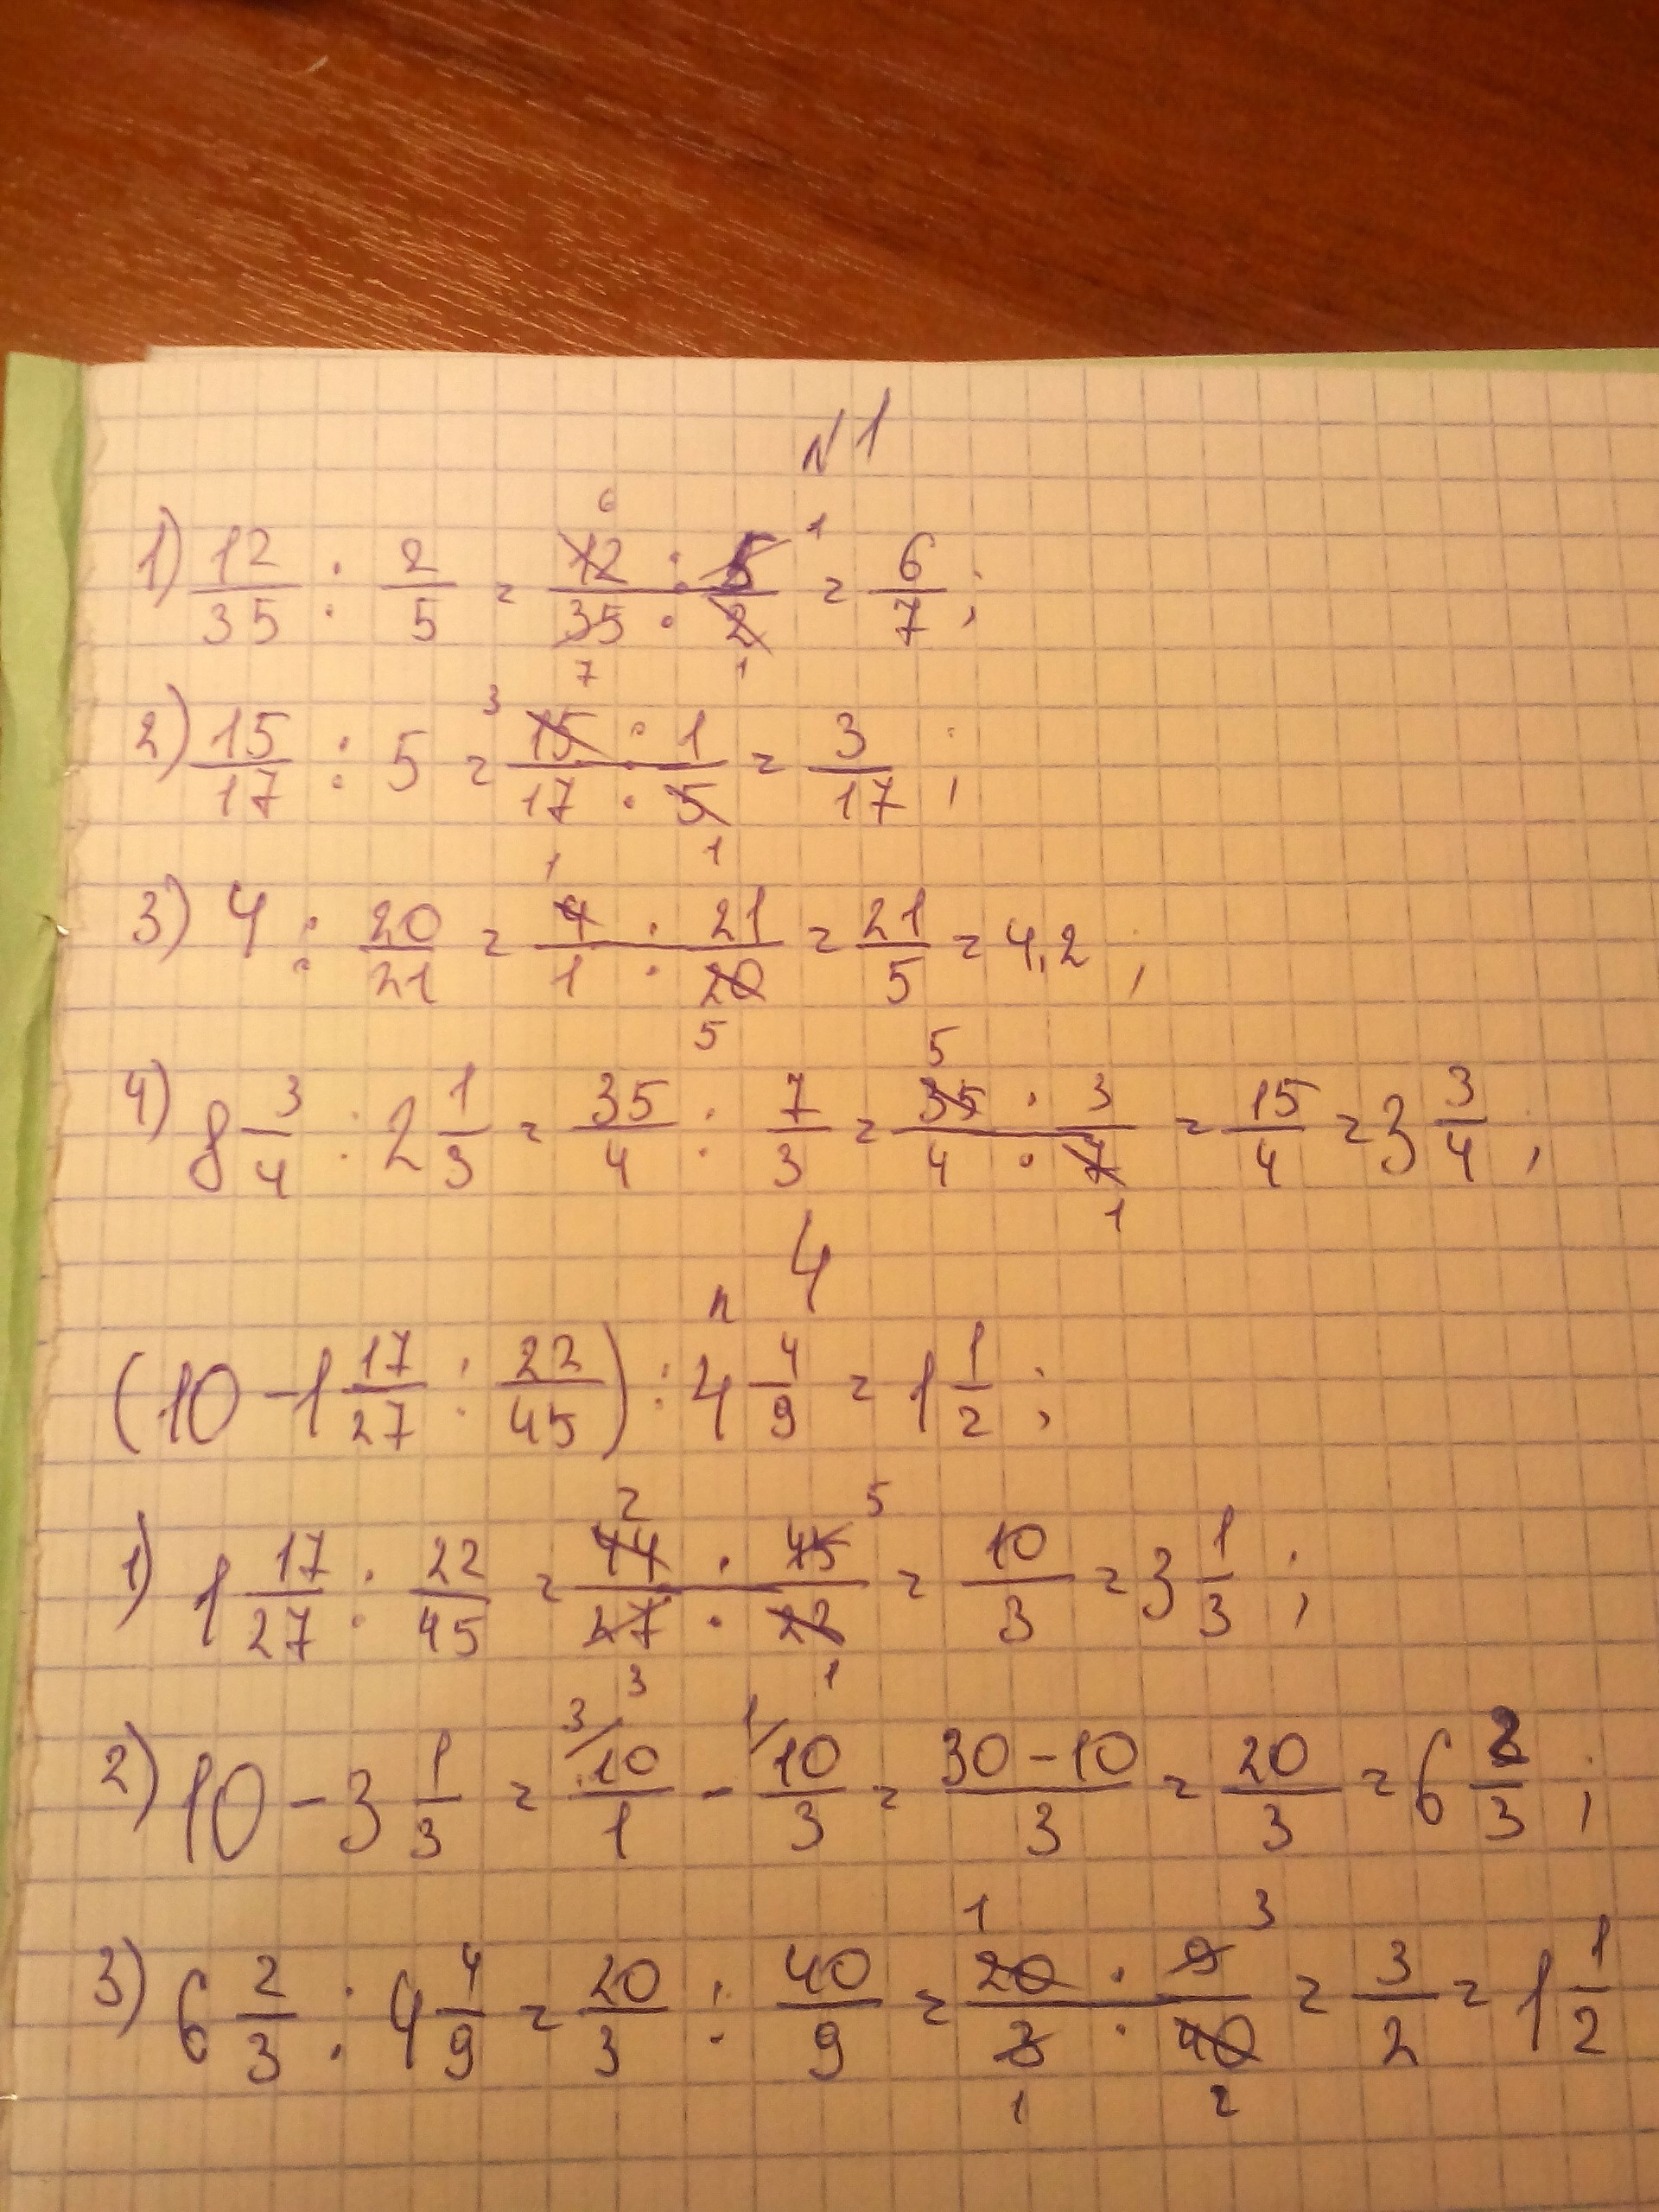 N1
1) 12/35 : 2/5 = 12 : 5/35 · 2 = 6/7 ;
6 1 7 1
2) 15/17 : 5 = 15 : 1/17 · 5 = 3/17 ;
3 1
3) 4 : 20/21 = 4 · 21/1 · 20 = 21/5 = 4,2 ;
1 5
4) 8 3/4 : 2 1/3 = 35/4 : 7/3 = 35 · 3/4 · 7 = 15/4 = 3 3/4 ;
5 1
n 4
(10 - 1 17/27 : 22/45) : 4 4/9 = 1 1/2 ;
1) 1 17/27 : 22/45 = 44 · 45/27 · 22 = 10/3 = 3 1/3 ;
2 5 3 1
2) 10 - 3 1/3 = 3/ 10/1 - 1/ 10/3 = 30 - 10/3 = 20/3 = 6 2/3 ;
3) 6 2/3 : 4 4/9 = 20/3 : 40/9 = 20 · 9/3 · 40 = 3/2 = 1 1/2
1 3 1 2